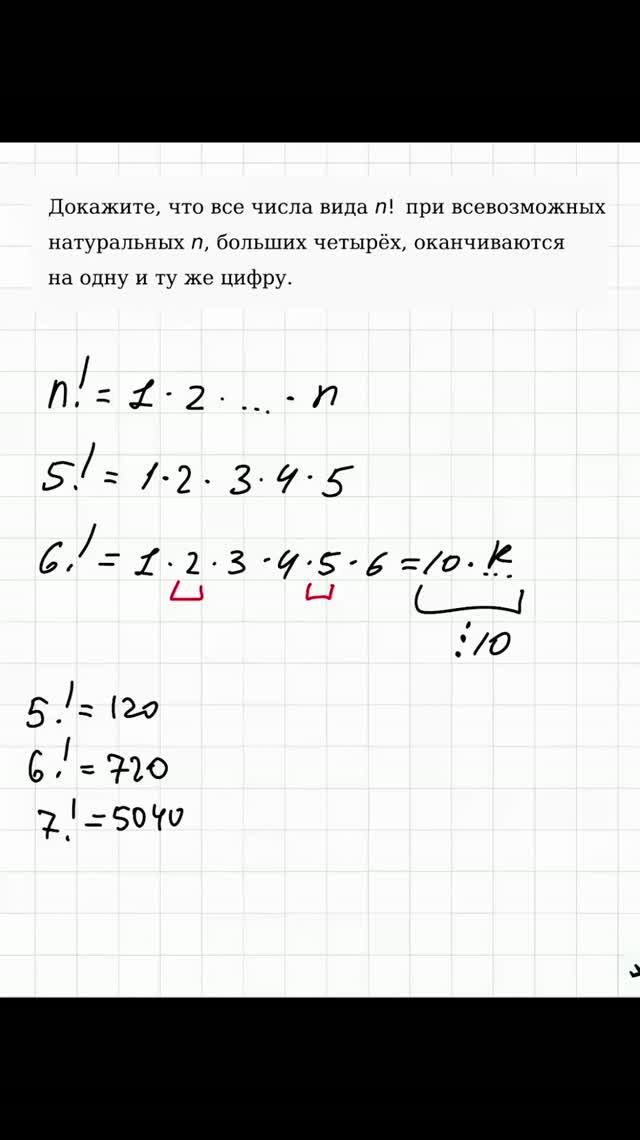 Докажите, что все числа вида n! при всевозможных
натуральных n, больших четырёх, оканчиваются
на одну и ту же цифру.
n! = 1 · 2 · ... · n
5! = 1 · 2 · 3 · 4 · 5
6! = 1 · 2 · 3 · 4 · 5 · 6 = 10 · k
⋮10
5! = 120
6! = 720
7! = 5040